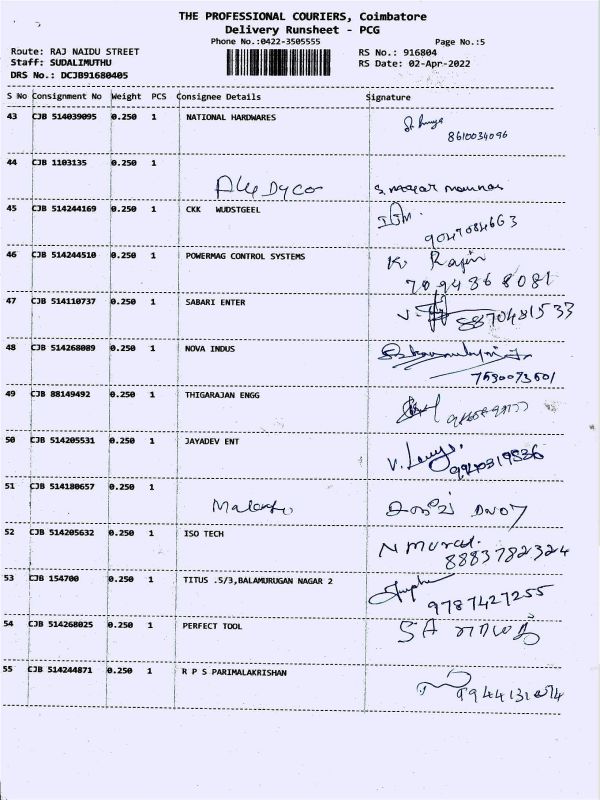 THE PROFESSIONAL COURIERS, Coimbatore
Delivery Runsheet - PCG
Phone No.:0422-3505555 Page No.:5
Route: RAJ NAIDU STREET RS No.: 916804
Staff: SUDALIMUTHU RS Date: 02-Apr-2022
DRS No.: DCJB91680405
S No Consignment No Weight PCS Consignee Details Signature
43 CJB 514039095 0.250 1 NATIONAL HARDWARES
8610034096
44 CJB 1103135 0.250 1
45 CJB 514244169 0.250 1 CKK WUDSTGEEL
9047084663
46 CJB 514244510 0.250 1 POWERMAG CONTROL SYSTEMS K. Rajin
7094368081
47 CJB 514110737 0.250 1 SABARI ENTER
8870481533
48 CJB 514268089 0.250 1 NOVA INDUS
49 CJB 88149492 0.250 1 THIGARAJAN ENGG
50 CJB 514205531 0.250 1 JAYADEV ENT
51 CJB 514180657 0.250 1
52 CJB 514205632 0.250 1 ISO TECH
8883782324
53 CJB 154700 0.250 1 TITUS .5/3,BALAMURUGAN NAGAR 2
9787427255
54 CJB 514268025 0.250 1 PERFECT TOOL
55 CJB 514244871 0.250 1 R P S PARIMALAKRISHAN